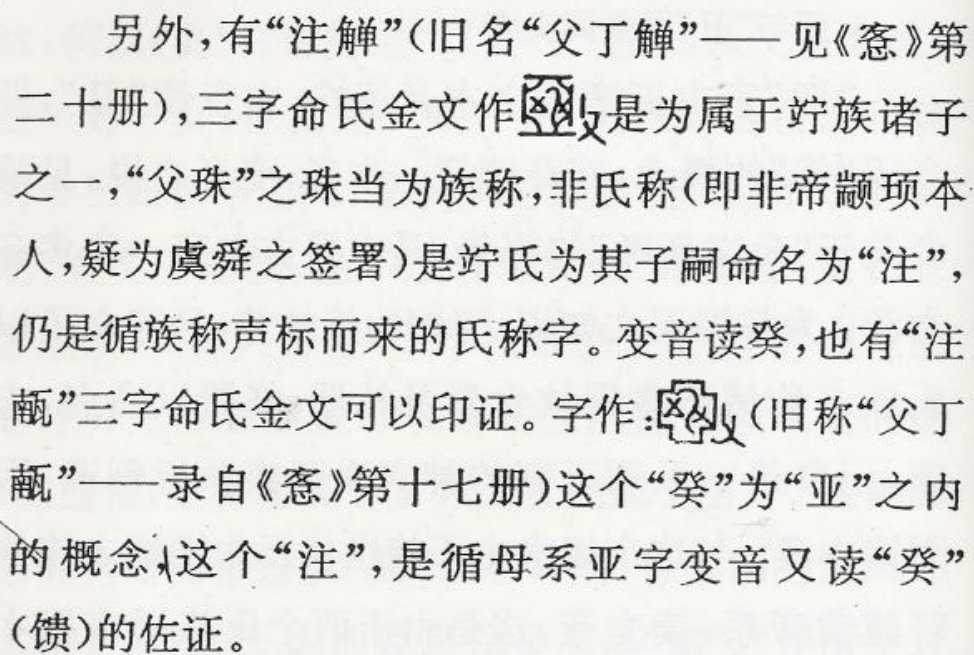 另外,有“注觯”(旧名“父丁觯”——见《愙》第
二十册),三字命氏金文作是为属于竚族诸子
之一,“父珠”之珠当为族称,非氏称(即非帝颛顼本
人,疑为虞舜之签署)是竚氏为其子嗣命名为“注”,
仍是循族称声标而来的氏称字。变音读癸,也有“注
甗”三字命氏金文可以印证。字作:(旧称“父丁
甗”——录自《愙》第十七册)这个“癸”为“亚”之内
的概念,这个“注”,是循母系亚字变音又读“癸”
(馈)的佐证。